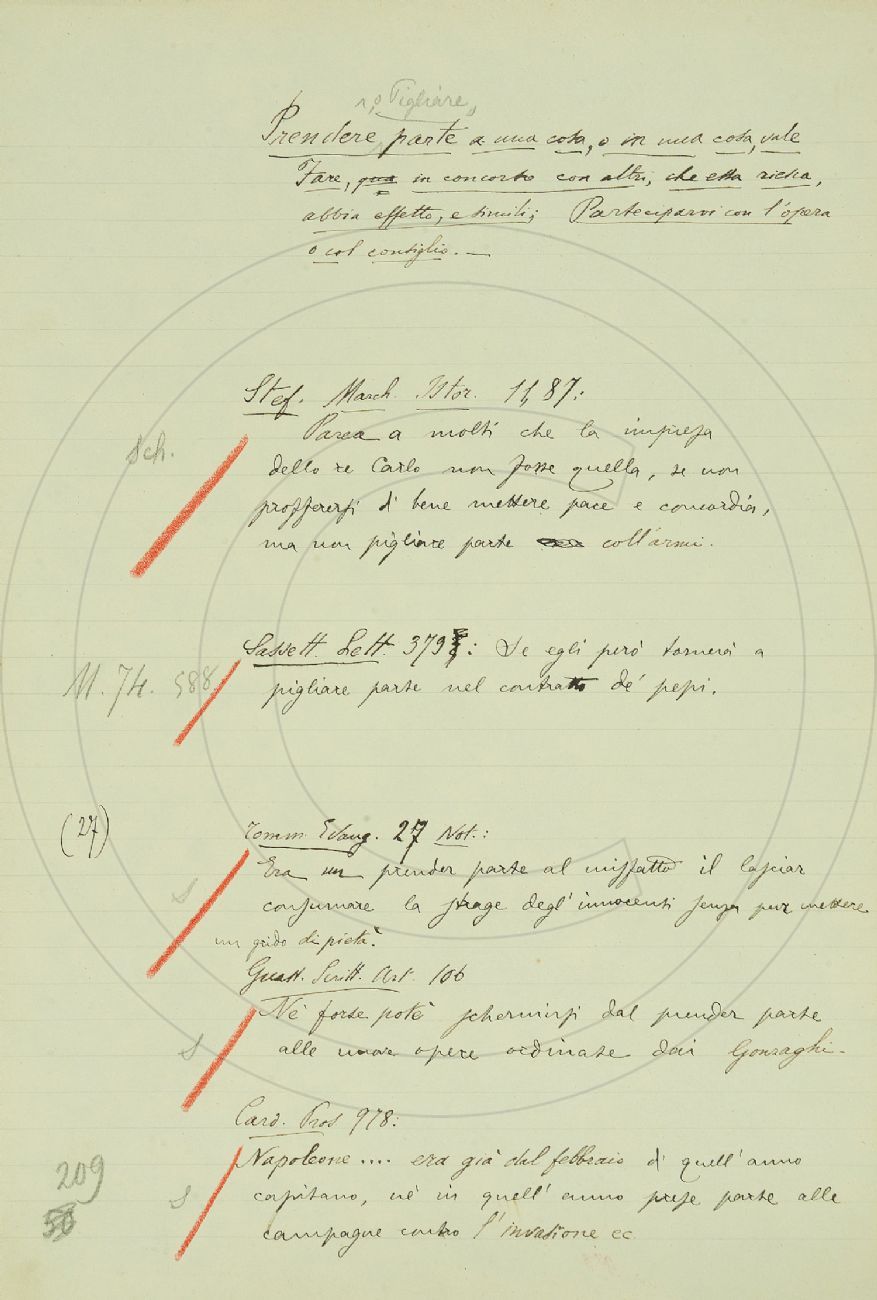 , o Pigliare,
Prendere parte a una cosa, o in una cosa, vale
Fare, in concorso con altri, che essa riesca,
abbia effetto, e simili; Parteciparvi con l'opera
o col consiglio. —
Stef. March. Istor. 11, 87:
Sch.
Parea a molti che la impresa
dello re Carlo non fosse quella, se non
profferersi di bene mettere pace e concordia,
ma non pigliare parte coll'armi.
Sassett. Lett. 379: Se egli però tornerà a
M. 74. 588
pigliare parte nel contratto de' pepi.
(27)
Tomm. Evang. 27 Not.:
Era prender parte al misfatto il lasciar
S
consumare la strage degl'innocenti senza pur mettere
un grido di pietà.
Guast. Scritt. Art. 106
Nè forse potè schermirsi dal prender parte
S
alle nuove opere ordinate dai Gonzaghi.
Card. Pros 978:
Napoleone .... era già dal febbraio di quell'anno
209
S
capitano, nè in quell'anno prese parte alle
50
campagne contro l'invasione ec.